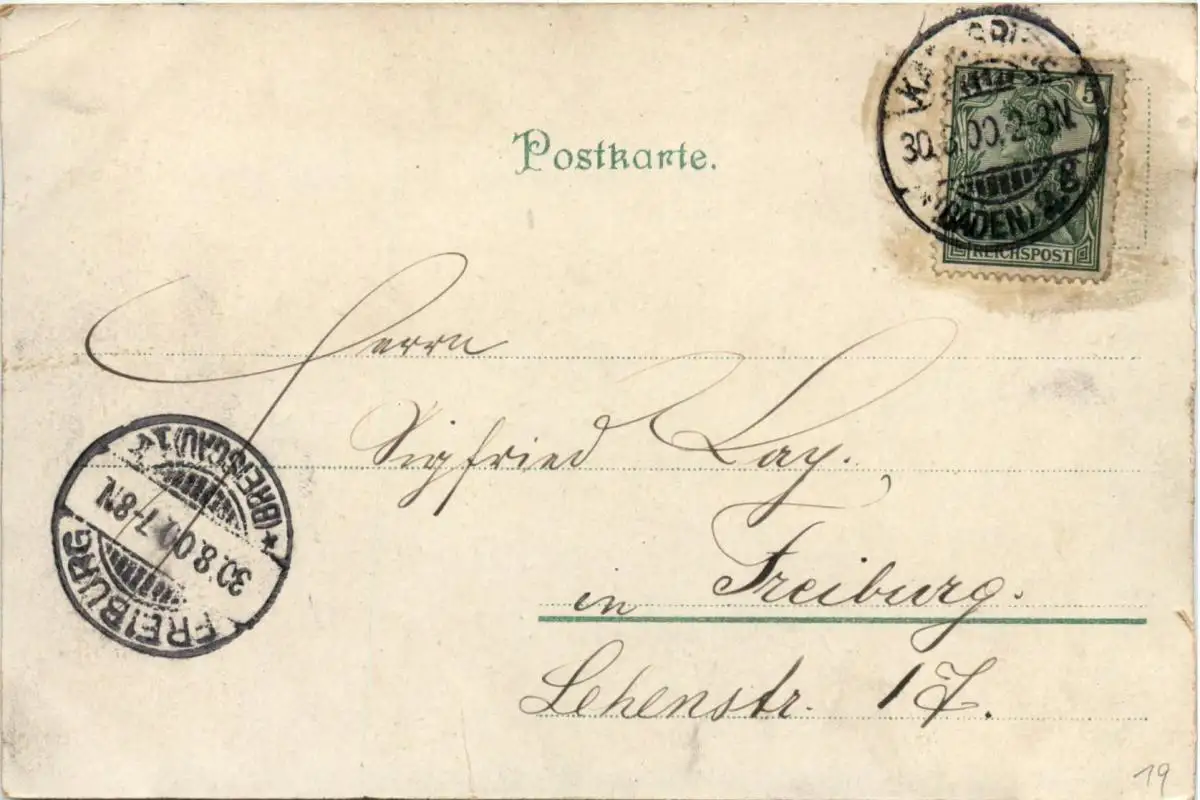 Postkarte.
5
30.8.00.2-3N.
*(BADEN) 2.g
REICHSPOST
Herrn
Sigfried Lay.
in Freiburg.
Lehenstr. 17.
FREIBURG
30.8.00.7-8N.
*(BREISGAU) 1
19